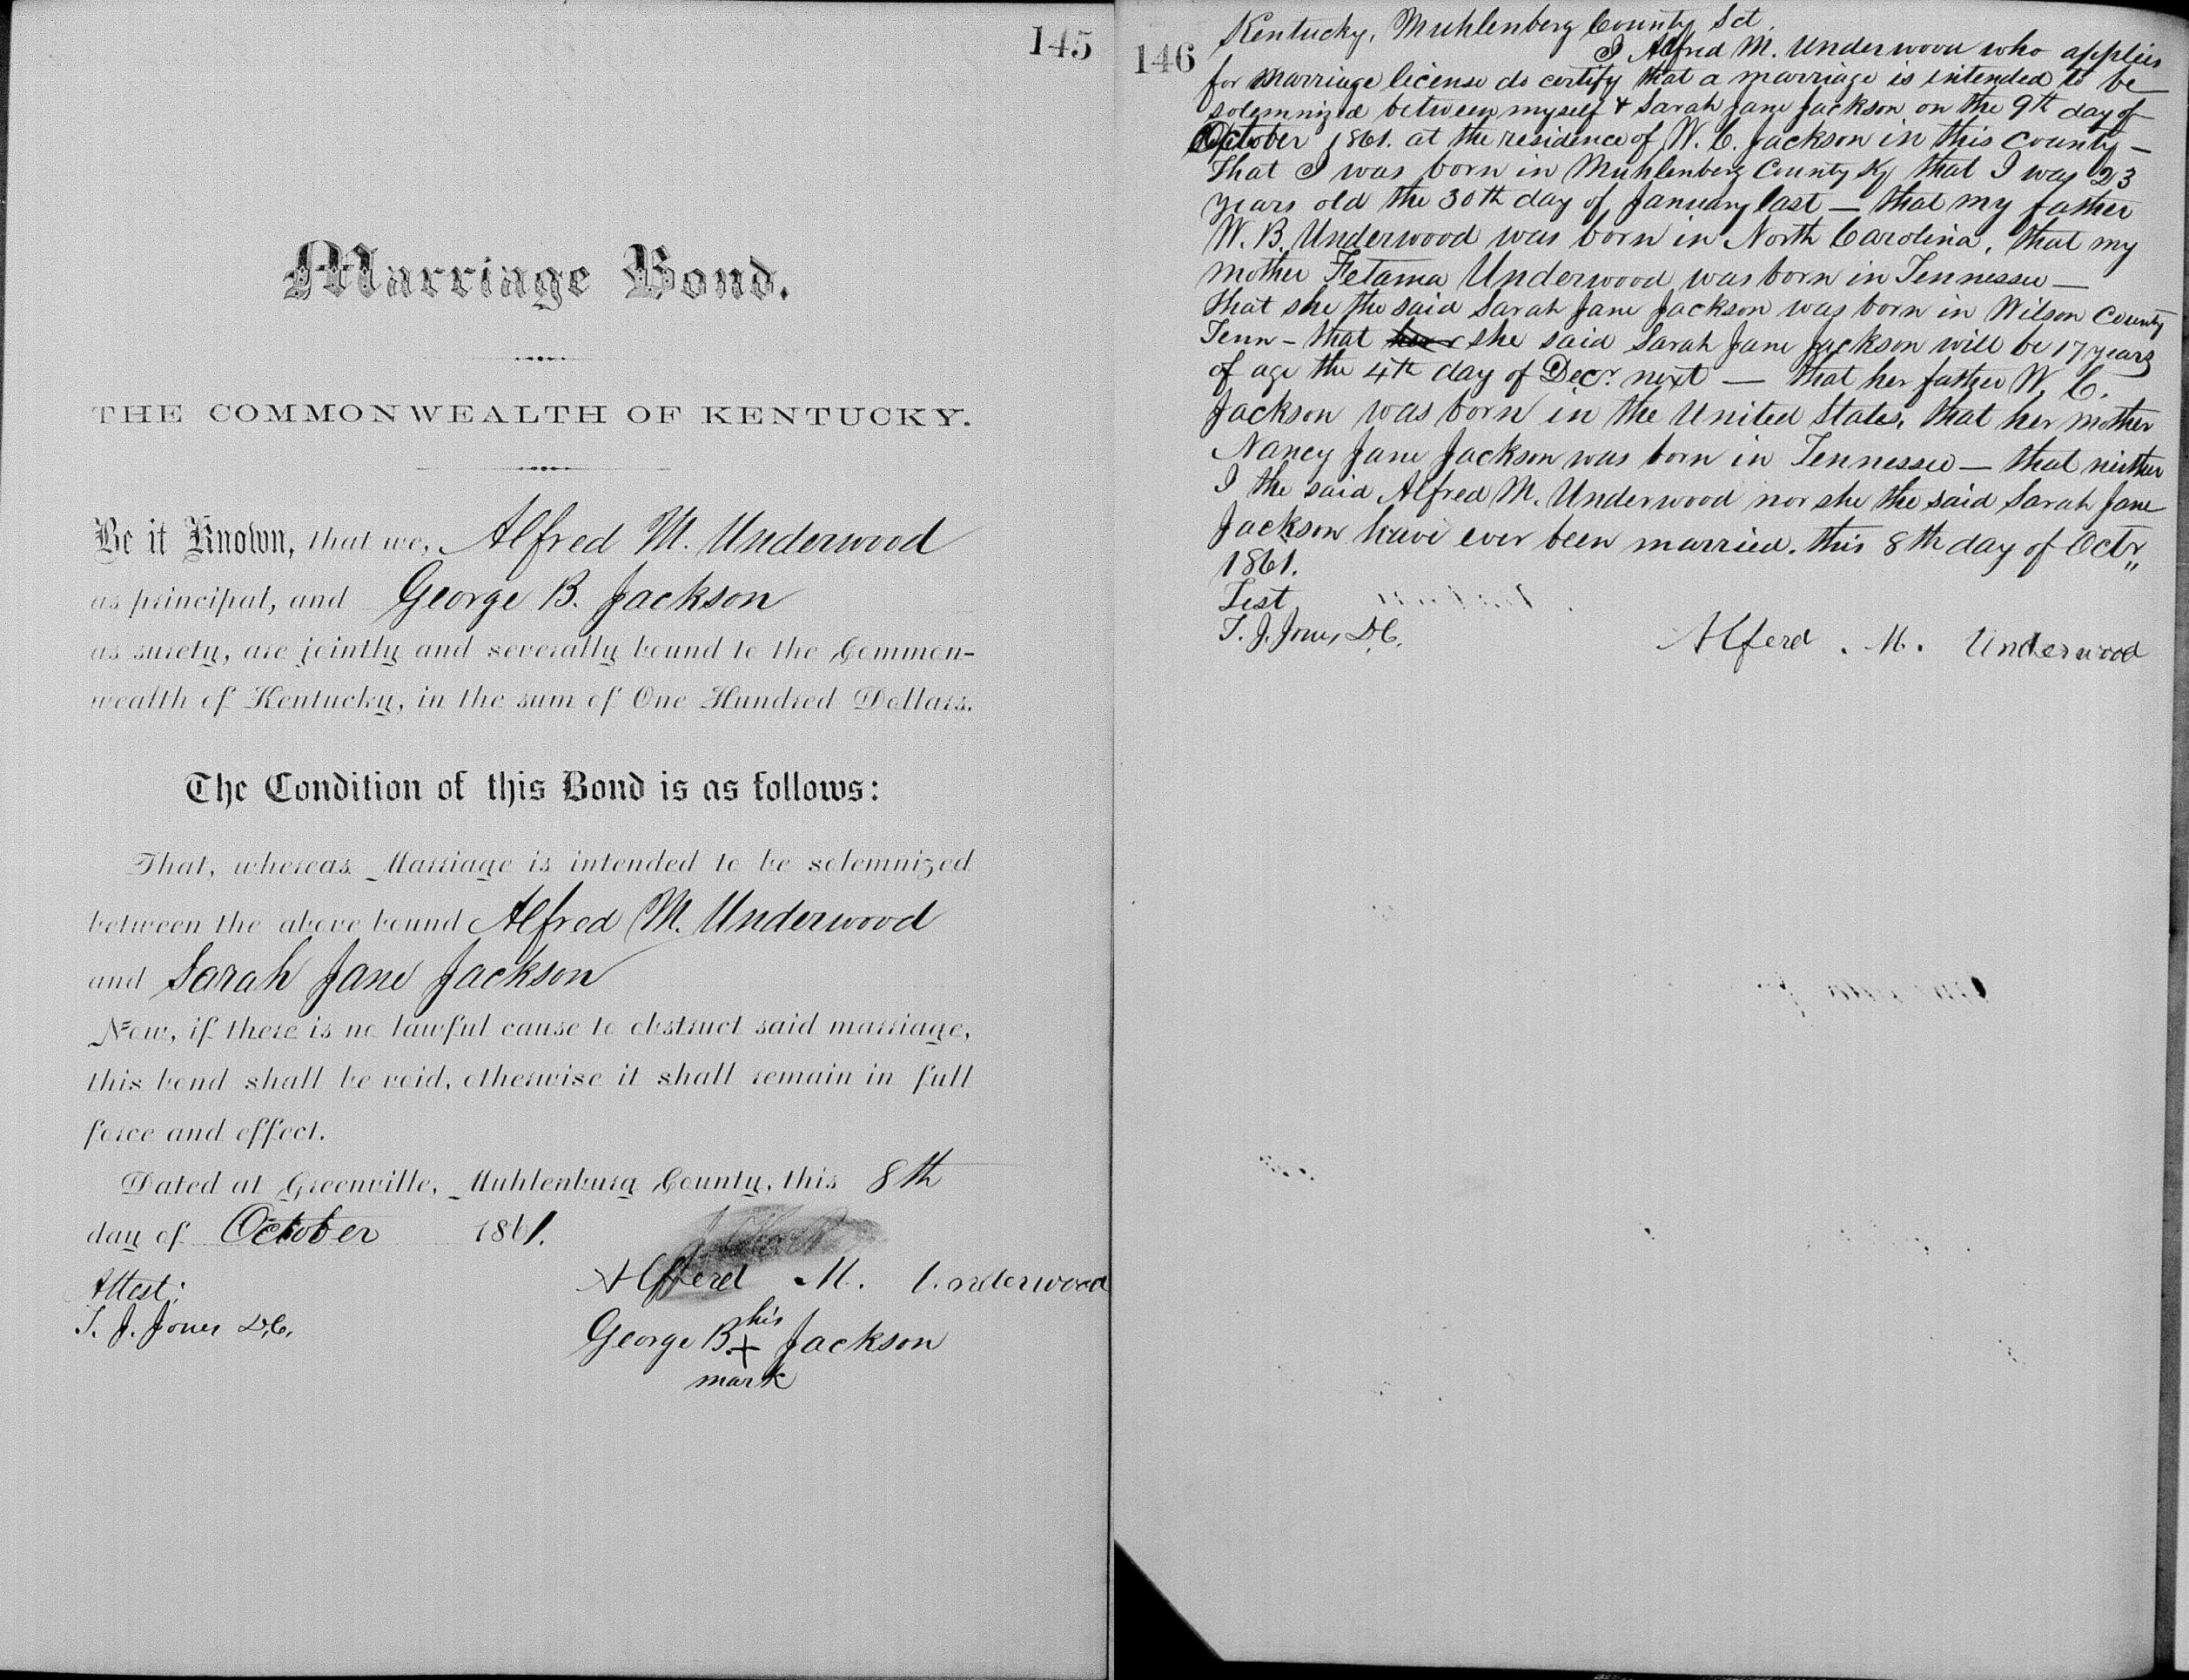 145
Marriage Bond.
THE COMMONWEALTH OF KENTUCKY.
Be it Known, that we, Alfred M. Underwood
as principal, and George B. Jackson
as surety, are jointly and severally bound to the Common-
wealth of Kentucky, in the sum of One Hundred Dollars.
The Condition of this Bond is as follows:
That, whereas Marriage is intended to be solemnized
between the above bound Alfred M. Underwood
and Sarah Jane Jackson
Now, if there is no lawful cause to obstruct said marriage,
this bond shall be void, otherwise it shall remain in full
force and effect.
Dated at Greenville, Muhlenburg County, this 8th
day of October 1861.
Attest;
T. J. Jones D.C.
Alfferd M. Underwood
his
George B. + Jackson
mark
146
Kentucky, Muhlenberg County Sct.
I Alfred M. Underwood who applies
for marriage license do certify that a marriage is intended to be
solemnized between myself & Sarah Jane Jackson on the 9th day of
October 1861. at the residence of W. C. Jackson in this county —
That I was born in Muhlenberg County Ky that I was 23
years old the 30th day of January last — that my father
W. B. Underwood was born in North Carolina, that my
mother Fetama Underwood was born in Tennessee —
that she the said Sarah Jane Jackson was born in Wilson County
Tenn - that she said Sarah Jane Jackson will be 17 years
of age the 4th day of Decr. next — that her father W. C.
Jackson was born in the United States, that her mother
Nancy Jane Jackson was born in Tennessee — that neither
I the said Alfred M. Underwood nor she the said Sarah Jane
Jackson have ever been married. this 8th day of Octr"
1861.
Test
T. J. Jones D.C.
Alferd . M. Underwood